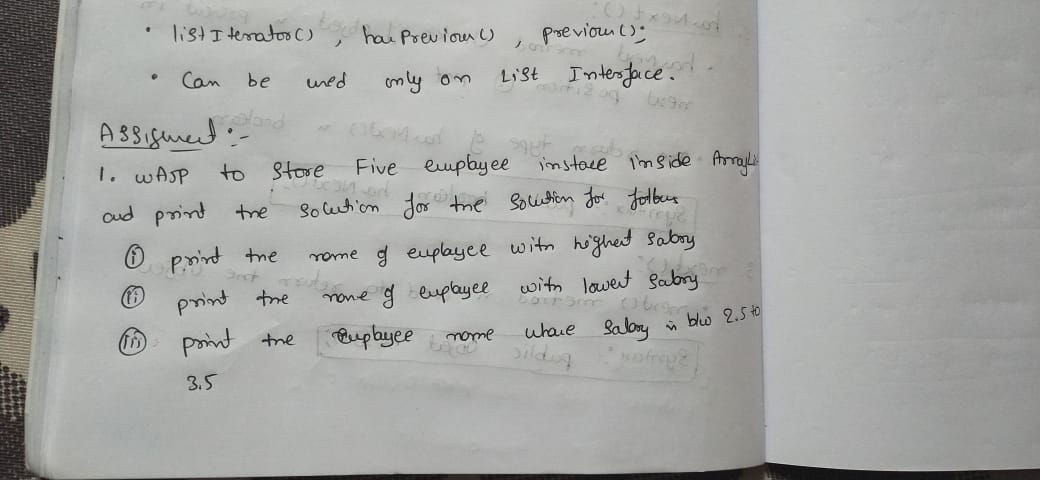 • listIterator(), hasPrevious(), previous();
• Can be used only on List Interface.
Assignment :-
1. WAJP to Store Five employee instace inside ArrayLi
and print the solution for the solution for follows
(i) print the name of employee with highest salary
(ii) print the name of employee with lowest salary
(iii) print the employee name whose salary is b/w 2.5 to
3.5